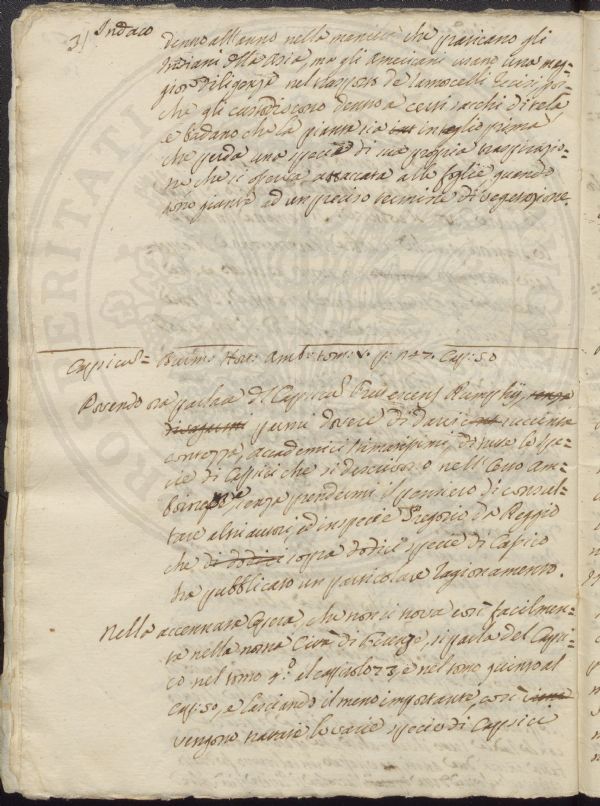 3) Indaco
dinno all'anno nelle maniere che praticano gli
Indiani dell'Asia, ma gli Americani usano una mag=
gior diligenza nel trasporto de' ramoscelli recisi per=
che gli custodiscono dentro a certi sacchi di tela
e badano che la pianta sia in foglie prima
che perda una specie di sua propria traspirazio=
ne che si osserva attaccata alle foglie quando
sono giunte ad un preciso termine di vegetazione.
Capsicu= Rumph: Hort: Amb: tom: V. p: 247. Cap: 50
Dovendo ora parlar del Capsicu Frutescens Rumphij, senza
parmi dovere di darvi succinta
contezza, Accademici Umanissimi, di tutte le spe=
cie di Capsici che si descrivono nell'Orto Am=
boinese, senza prendermi il pensiero di consul=
tare altri autori, ed in specie Gregorio da Reggio
che di dodici sopra dodici specie di Capsico
ha pubblicato un particolare ragionamento.
Nella accennata Opera, che non si trova così facilmen=
te nella nostra Città di Firenze, si parla del Capsi=
co nel tomo 9.º al capitolo 73, e nel tomo quinto al
cap: 50, e lasciando il meno importante, così
vengono trattate le varie specie di Capsici